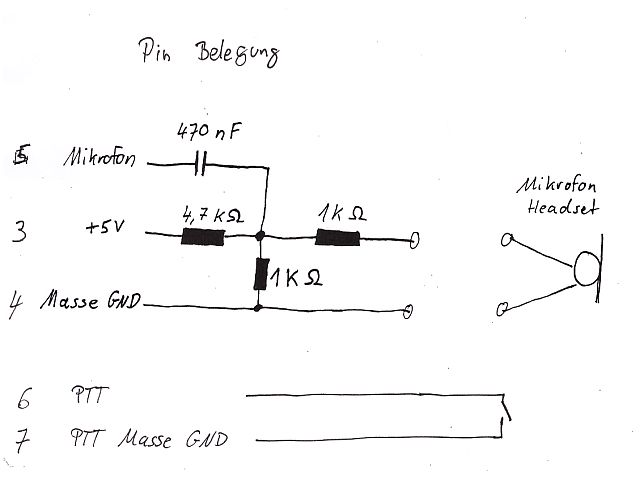 Pin Belegung
470 nF
5 Mikrofon
Mikrofon
Headset
4,7 KΩ
1K Ω
3 +5V
1K Ω
4 Masse GND
6 PTT
7 PTT Masse GND